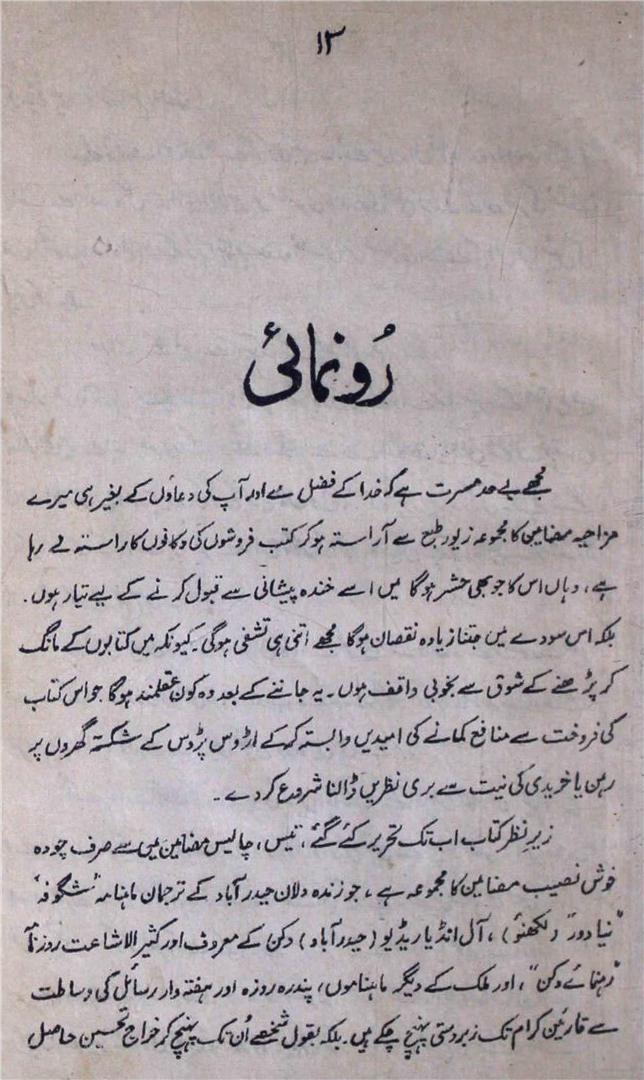 ۱۳
رُونمائی
مجھے بے حد مسرت ہے کہ خدا کے فضل سے اور آپ کی دعاوں کے بغیر ہی میرے
مزاحیہ مضامین کا مجموعہ زیور طبع سے آراستہ ہو کر کتب فروشوں کی دکانوں کا راستہ لے رہا
ہے، وہاں اس کا جو بھی حشر ہوگا میں اسے خندہ پیشانی سے قبول کرنے کے لیے تیار ہوں.
بلکہ اس سودے میں جتنا زیادہ نقصان ہوگا مجھے اتنی ہی تشفی ہوگی۔ کیونکہ میں کتابوں کے مانگ
کر پڑھنے کے شوق سے بخوبی واقف ہوں۔ یہ جاننے کے بعد وہ کون عقلمند ہوگا جو اس کتاب
کی فروخت سے منافع کمانے کی امیدیں وابستہ کر کے اڑوس پڑوس کے شکستہ گھروں پر
رہن یا خریدی کی نیت سے بری نظریں ڈالنا شروع کر دے۔
زیرِ نظر کتاب اب تک تحریر کئے گئے، تیس، چالیس مضامین میں سے صرف چودہ
خوش نصیب مضامین کا مجموعہ ہے، جو زندہ دلان حیدرآباد کے ترجمان ماہنامہ "شگوفہ"
"نیا دور" (لکھنؤ)، آل انڈیا ریڈیو (حیدرآباد) دکن کے معروف اور کثیر الاشاعت روزنامہ
"رہنمائے دکن"، اور ملک کے دیگر ماہناموں، پندرہ روزہ اور ہفتہ وار رسائل کی وساطت
سے قارئین کرام تک زبردستی پہنچ چکے ہیں۔ بلکہ بقول شخصے اُن تک پہنچ کر خراج تحسین حاصل